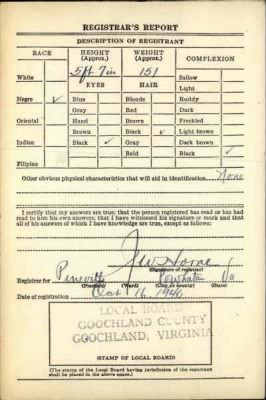 REGISTRAR'S REPORT
DESCRIPTION OF REGISTRANT
RACE HEIGHT (Approx.) WEIGHT (Approx.) COMPLEXION
5 ft 7 in 151
White Sallow
EYES HAIR Light
Negro ✓ Blue Blonde Ruddy
Gray Red Dark
Oriental Hazel Brown Freckled
Brown Black ✓ Light brown
Indian Black ✓ Gray Dark brown
Bald Black ✓
Filipino
Other obvious physical characteristics that will aid in identification None
I certify that my answers are true; that the person registered has read or has had read to him his own answers; that I have witnessed his signature or mark and that all of his answers of which I have knowledge are true, except as follows:
(Signature of registrar)
Registrar for Powhatan Va
(Precinct) (Ward) (City or county) (State)
Date of registration Oct 16, 1940
LOCAL BOARD
GOOCHLAND COUNTY
GOOCHLAND, VIRGINIA
(STAMP OF LOCAL BOARD)
(The stamp of the Local Board having jurisdiction of the registrant
shall be placed in the above space.)